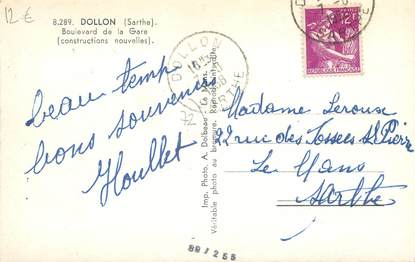 12 €
8.289. DOLLON (Sarthe).
Boulevard de la Gare
(constructions nouvelles).
DOLLON
SARTHE
beau temp
bons souvenirs
Houllet
Imp. Photo. A. Dolbeau Le Mans.
Véritable photo au bromure. Reproduction interdite.
Madame Lerouse
22 rue des Fossés St Pierre
Le Mans
Sarthe
89/255